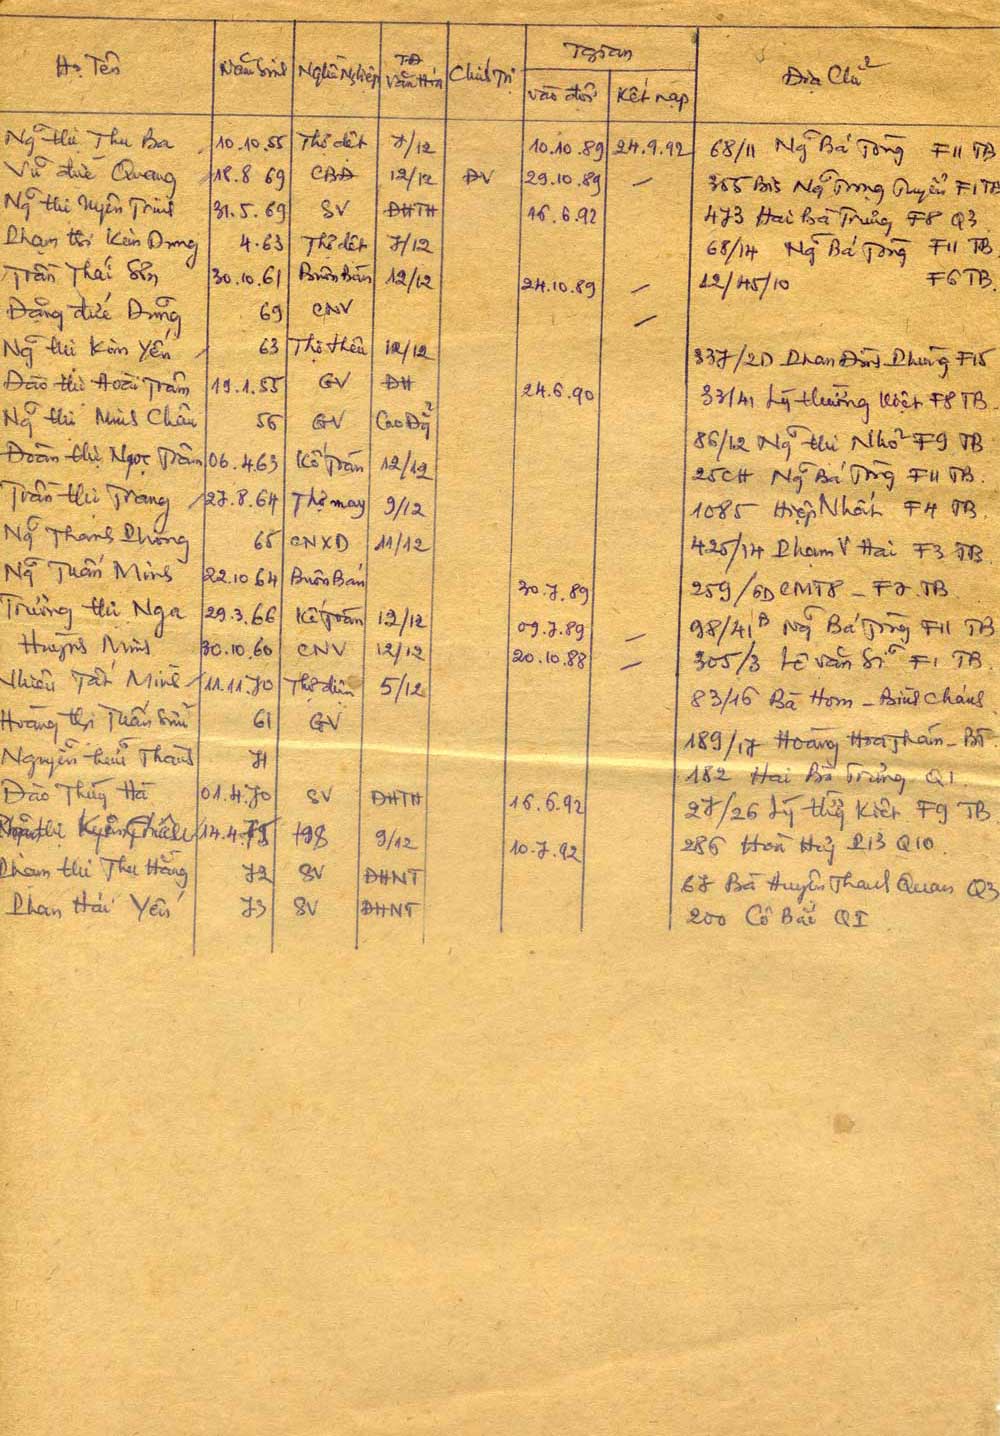 Họ Tên Năm Sinh Nghề Nghiệp TĐ Văn Hóa Chính Trị Tgian vào đội Kết nạp Địa Chỉ
Ng̃ thị Thu Ba 10.10.55 Thợ dệt 7/12 10.10.89 24.9.92 68/11 Ng̃ Bá Tòng F11 TB
Vũ đức Quang 18.8 69 CBĐ 12/12 ĐV 29.10.89 – 355 Bis Ng̃ Trọng Tuyển F1 TB
Ng̃ thị Uyên Trinh 31.5.69 SV ĐHTH 16.6.92 473 Hai Bà Trưng F8 Q3
Phạm thị Kim Dung 4.63 Thợ dệt 7/12 68/14 Ng̃ Bá Tòng F11 TB
Trần Thái Sơn 30.10.61 Buôn Bán 12/12 24.10.89 – 12/45/10 F6 TB.
Đặng đức Dũng 69 CNV –
Ng̃ thị Kim Yến 63 Thợ thêu 12/12 337/2D Phan Đình Phùng F15
Đào thị Hoài Trâm 19.1.55 GV ĐH 24.6.90 33/41 Lý thường Kiệt F8 TB.
Ng̃ thị Minh Châu 56 GV Cao Đẳg 86/12 Ng̃ thị Nhỏ F9 TB
Đoàn thị Ngọc Trâm 06.4.63 Kế Toán 12/12 25CH Ng̃ Bá Tòng F11 TB.
Trần thị Trang 27.8.64 Thợ may 9/12 1085 Hiệp Nhất F4 TB.
Ng̃ Thanh Phong 65 CNXD 11/12 425/14 Phạm V Hai F3 TB.
Ng̃ Tuấn Minh 22.10 64 Buôn Bán 30.7.89 259/6D CMT8 – F7 TB.
Trương thị Nga 29.3.66 Kế Toán 12/12 09.7.89 – 98/41B Ng̃ Bá Tòng F11 TB
Huỳnh Minh 30.10.60 CNV 12/12 20.10.88 – 305/3 Lê văn Sĩ F1 TB.
Nhiêu Tất Minh 11.11.70 Thợ điện 5/12 83/16 Bà Hom – Bình Chánh.
Hoàng thị Tuấn 61 GV 189/17 Hoàng Hoa Thám – BT.
Nguyễn hữu Thanh 71 182 Hai Bà Trưng Q1
Đào Thúy Hà 01.4.70 SV ĐHTH 16.6.92 27/26 Lý thg̃ Kiệt F9 TB.
14.4.75 9/12 10.7.92 286 Hoà Hảo P13 Q10.
Phạm thị Thu Hằng 72 SV ĐHNT 67 Bà Huyện Thanh Quan Q3
Phan Hải Yến 73 SV ĐHNT 200 Cô Bắc Q1